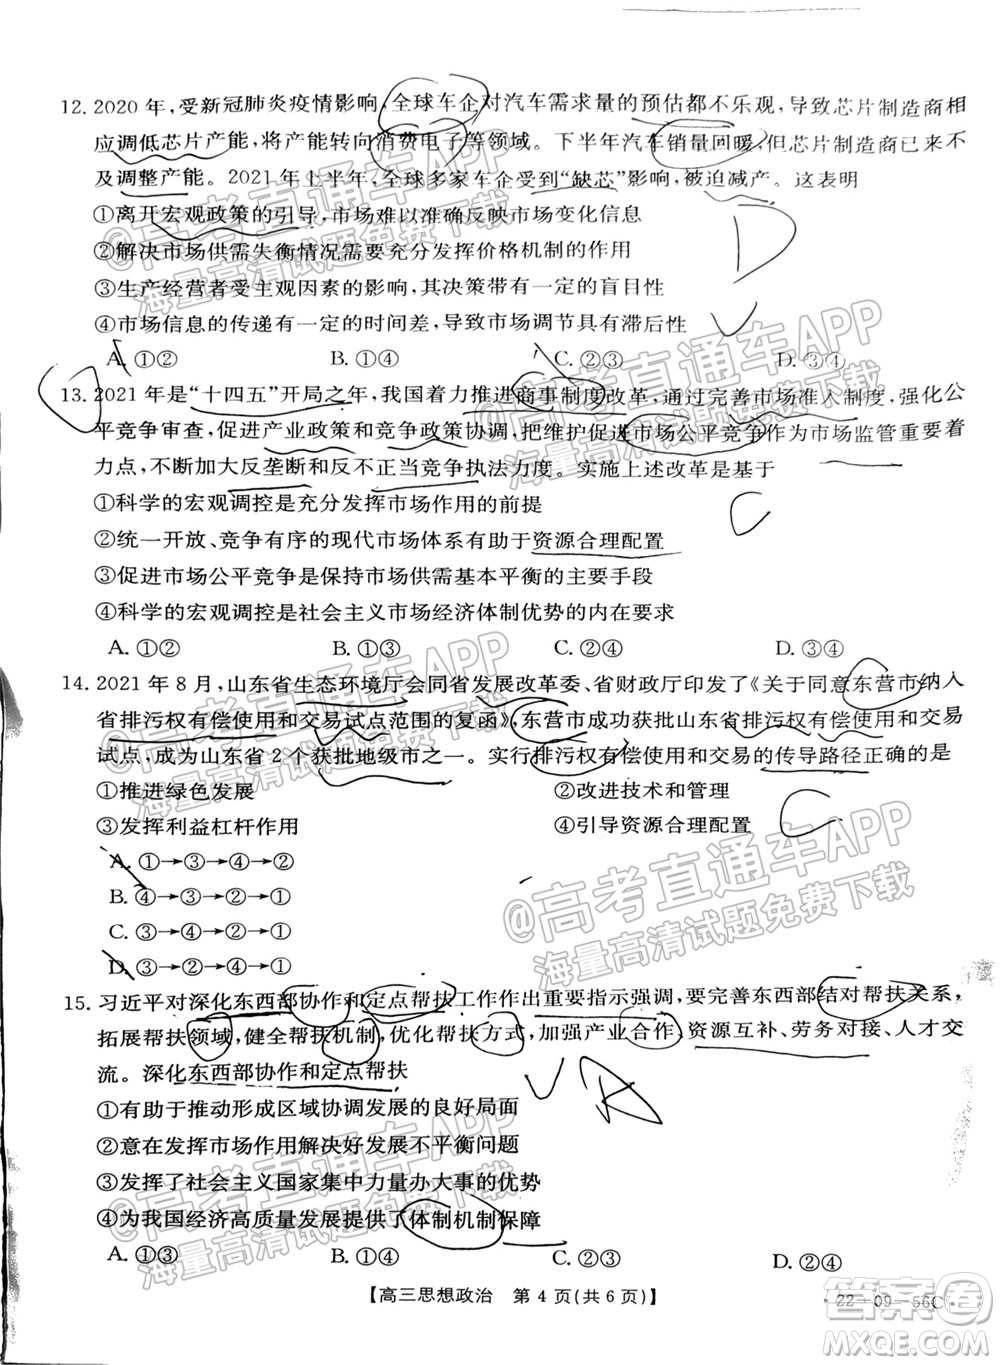 12. 2020 年,受新冠肺炎疫情影响,全球车企对汽车需求量的预估都不乐观,导致芯片制造商相
应调低芯片产能,将产能转向消费电子等领域。下半年汽车销量回暖,但芯片制造商已来不
及调整产能。2021 年上半年,全球多家车企受到“缺芯”影响,被迫减产。这表明
①离开宏观政策的引导,市场难以准确反映市场变化信息
②解决市场供需失衡情况需要充分发挥价格机制的作用
③生产经营者受主观因素的影响,其决策带有一定的盲目性
④市场信息的传递有一定的时间差,导致市场调节具有滞后性
A. ①② B. ①④ C. ②③ D. ③④
D
13. 2021 年是“十四五”开局之年,我国着力推进商事制度改革,通过完善市场准入制度,强化公
平竞争审查,促进产业政策和竞争政策协调,把维护促进市场公平竞争作为市场监管重要着
力点,不断加大反垄断和反不正当竞争执法力度。实施上述改革是基于
①科学的宏观调控是充分发挥市场作用的前提
②统一开放、竞争有序的现代市场体系有助于资源合理配置
③促进市场公平竞争是保持市场供需基本平衡的主要手段
④科学的宏观调控是社会主义市场经济体制优势的内在要求
A. ①② B. ①③ C. ②④ D. ③④
C
14. 2021 年 8 月,山东省生态环境厅会同省发展改革委、省财政厅印发了《关于同意东营市纳入
省排污权有偿使用和交易试点范围的复函》,东营市成功获批山东省排污权有偿使用和交易
试点,成为山东省 2 个获批地级市之一。实行排污权有偿使用和交易的传导路径正确的是
①推进绿色发展 ②改进技术和管理
③发挥利益杠杆作用 ④引导资源合理配置
A. ①→③→④→②
B. ④→③→②→①
C. ③→④→②→①
D. ③→②→④→①
C
15. 习近平对深化东西部协作和定点帮扶工作作出重要指示强调,要完善东西部结对帮扶关系,
拓展帮扶领域,健全帮扶机制,优化帮扶方式,加强产业合作、资源互补、劳务对接、人才交
流。深化东西部协作和定点帮扶
①有助于推动形成区域协调发展的良好局面
②意在发挥市场作用解决好发展不平衡问题
③发挥了社会主义国家集中力量办大事的优势
④为我国经济高质量发展提供了体制机制保障
A. ①③ B. ①④ C. ②③ D. ②④
【高三思想政治 第 4 页(共 6 页)】
·22－09－56C·
@高考直通车APP
海量高清试题免费下载
@高考直通车APP
海量高清试题免费下载
@高考直通车APP
海量高清试题免费下载
@高考直通车APP
海量高清试题免费下载
@高考直通车APP
海量高清试题免费下载
答案圈
MXQE.COM